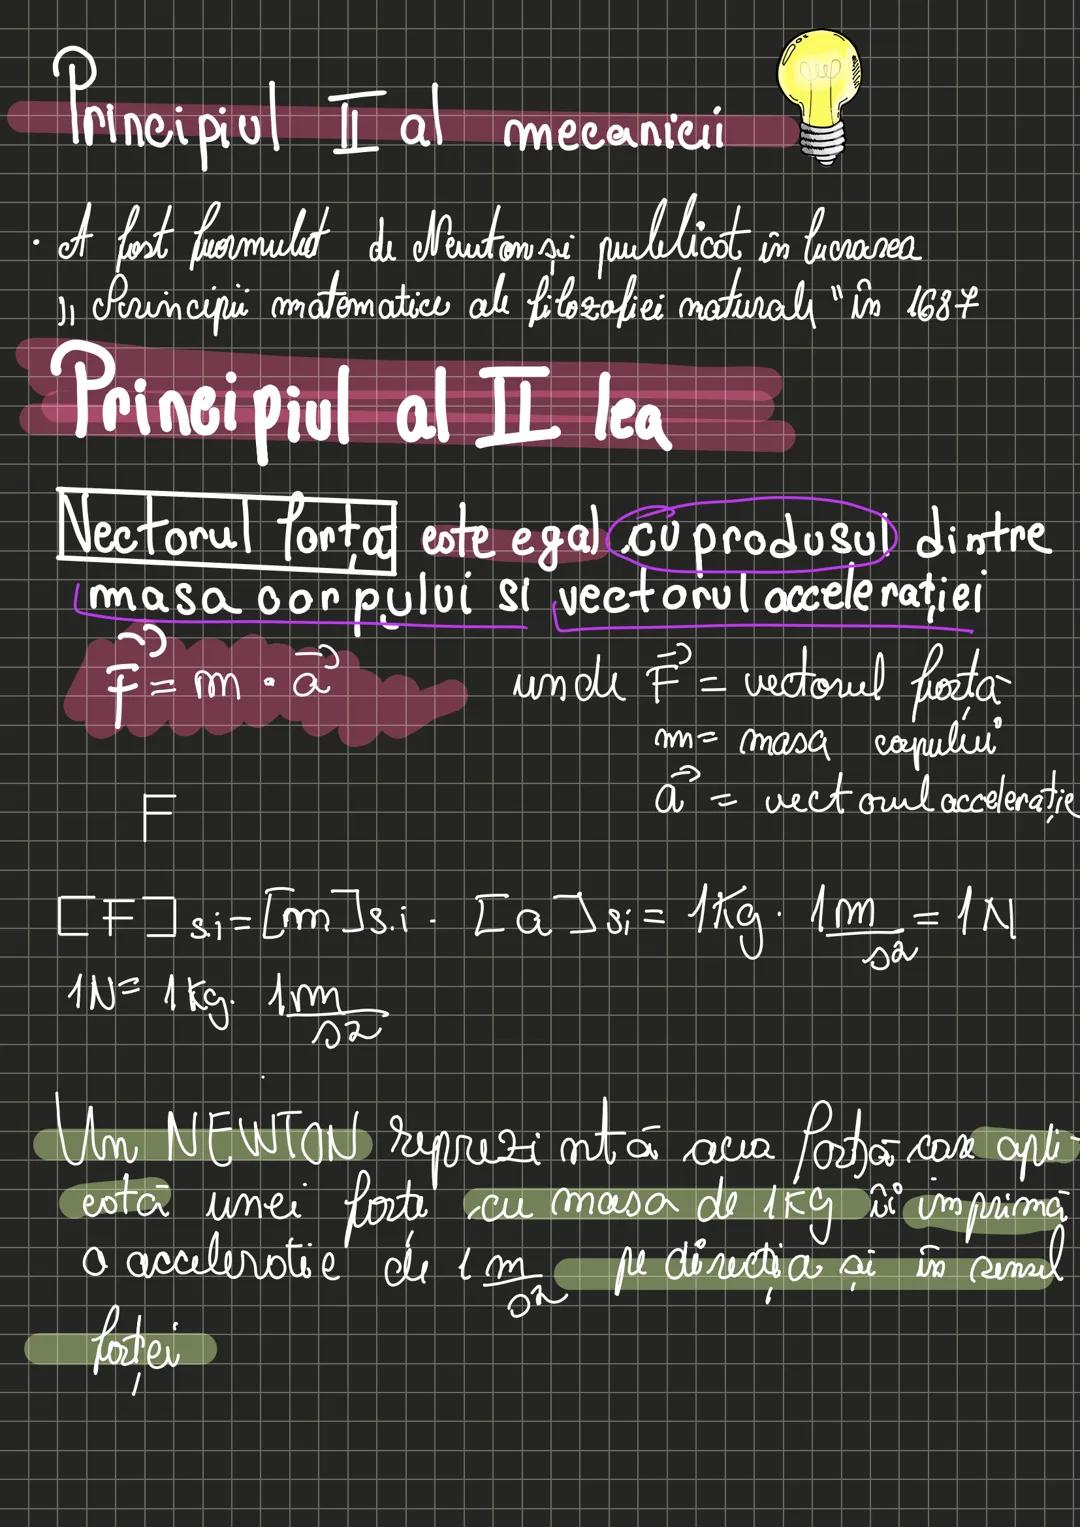 Principiul II al mecanicii
· A fost formulat de Newton și publicat în lucrarea
„ Principii matematice ale filozofiei naturale " în 1687
Principiul al II lea
Vectorul forța este egal cu produsul dintre
masa corpului si vectorul accelerației
F = m · a unde F = vectorul forța
m = masa corpului
a = vectorul accelerație
F
[F]s.i = [m]s.i · [a]si = 1Kg · 1m/s2 = 1N
1N = 1Kg · 1m/s2
Un NEWTON reprezintă acea forță care apli-
cată unei forțe cu masa de 1KG îi imprimă
o accelerație de 1 m/s2 pe direcția și în sensul
forței